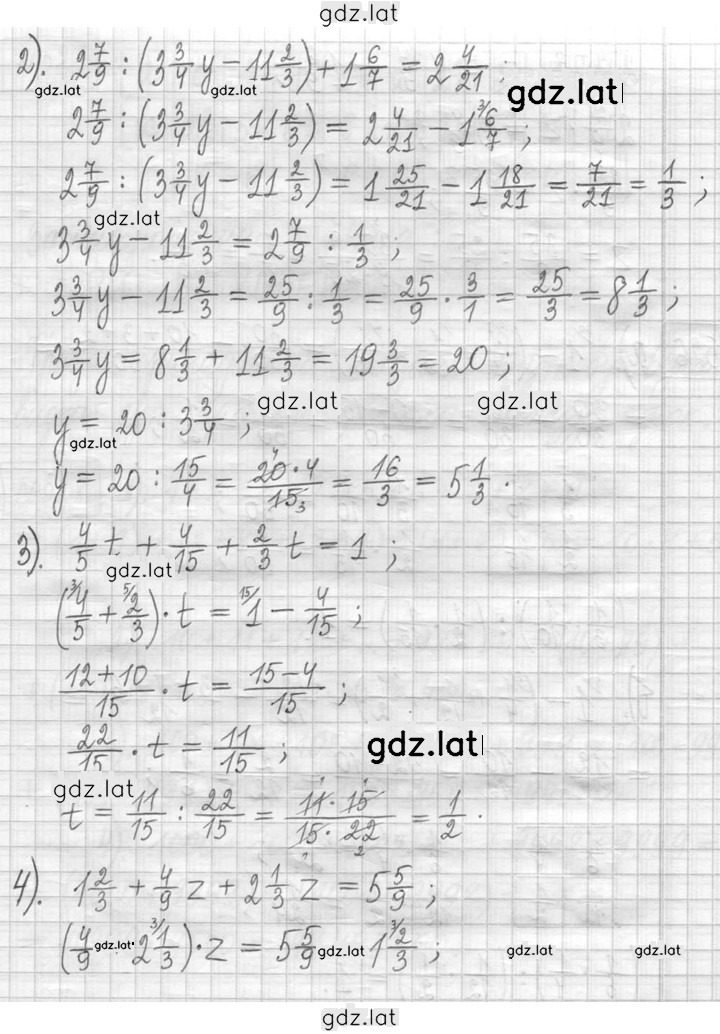 gdz.lat
2). 2 7/9 : (3 3/4 y − 11 2/3) + 1 6/7 = 2 4/21 ;
gdz.lat gdz.lat gdz.lat
2 7/9 : (3 3/4 y − 11 2/3) = 2 4/21 − 1 ³⁄6/7 ;
2 7/9 : (3 3/4 y − 11 2/3) = 1 25/21 − 1 18/21 = 7/21 = 1/3 ;
gdz.lat
3 3/4 y − 11 2/3 = 2 7/9 : 1/3 ;
3 3/4 y − 11 2/3 = 25/9 : 1/3 = 25/9 · 3/1 = 25/3 = 8 1/3 ;
3 3/4 y = 8 1/3 + 11 2/3 = 19 3/3 = 20 ;
gdz.lat gdz.lat
y = 20 : 3 3/4 ;
gdz.lat
y = 20 : 15/4 = 20 · 4/15 = 16/3 = 5 1/3 .
3). 4/5 t + 4/15 + 2/3 t = 1 ;
gdz.lat
(³⁄4/5 + ⁵⁄2/3) · t = ¹⁵⁄1 − 4/15 ;
12+10/15 · t = 15−4/15 ;
22/15 · t = 11/15 ;
gdz.lat
gdz.lat
t = 11/15 : 22/15 = 11 · 15/15 · 22 = 1/2 .
4). 1 2/3 + 4/9 z + 2 1/3 z = 5 5/9 ;
(4/9 gdz.lat 2 ³⁄1/3) · z = 5 5/9 gdz.lat 1 ³⁄2/3 ;
gdz.lat gdz.lat
gdz.lat